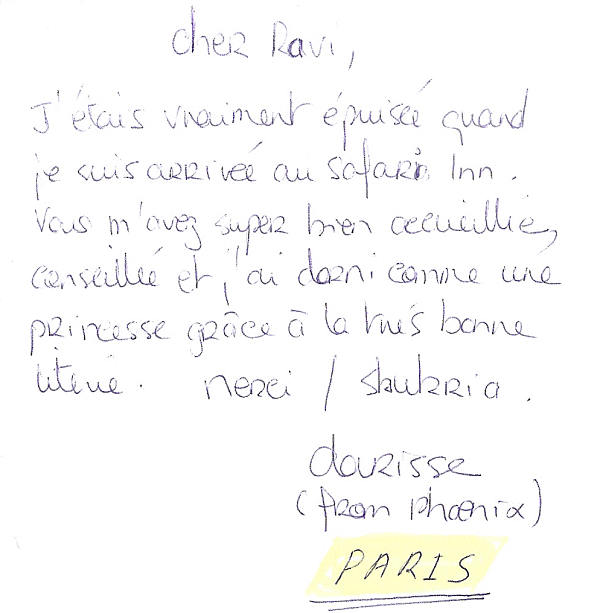 cher Ravi,
J'étais vraiment épuisée quand
je suis arrivée au Safari Inn.
Vous m'avez super bien accueillie,
conseillée et j'ai dormi comme une
princesse grâce à la très bonne
literie. merci / shukria.
(from Phœnix)
PARIS